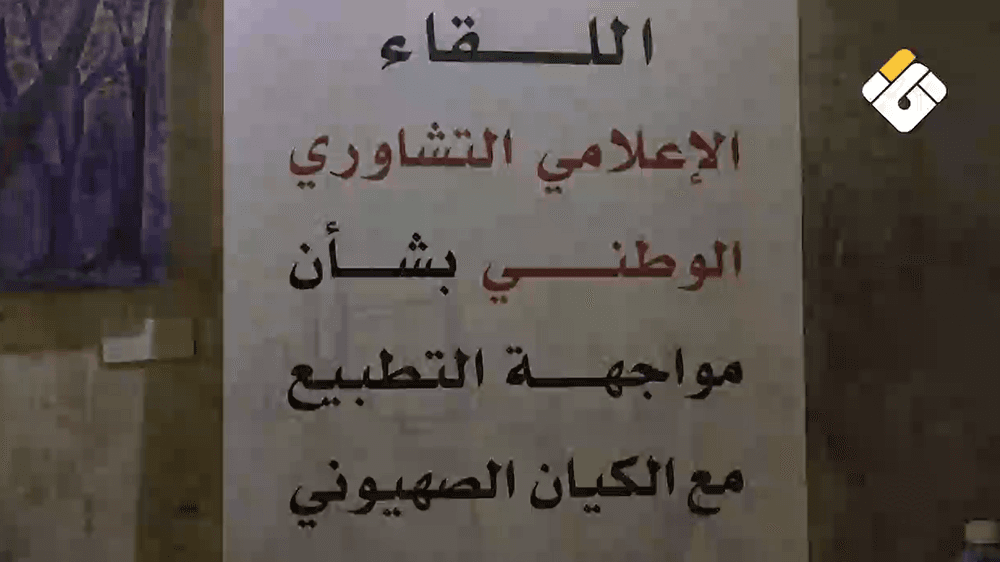 اللقاء
الإعلامي التشاوري
الوطني بشأن
مواجهة التطبيع
مع الكيان الصهيوني